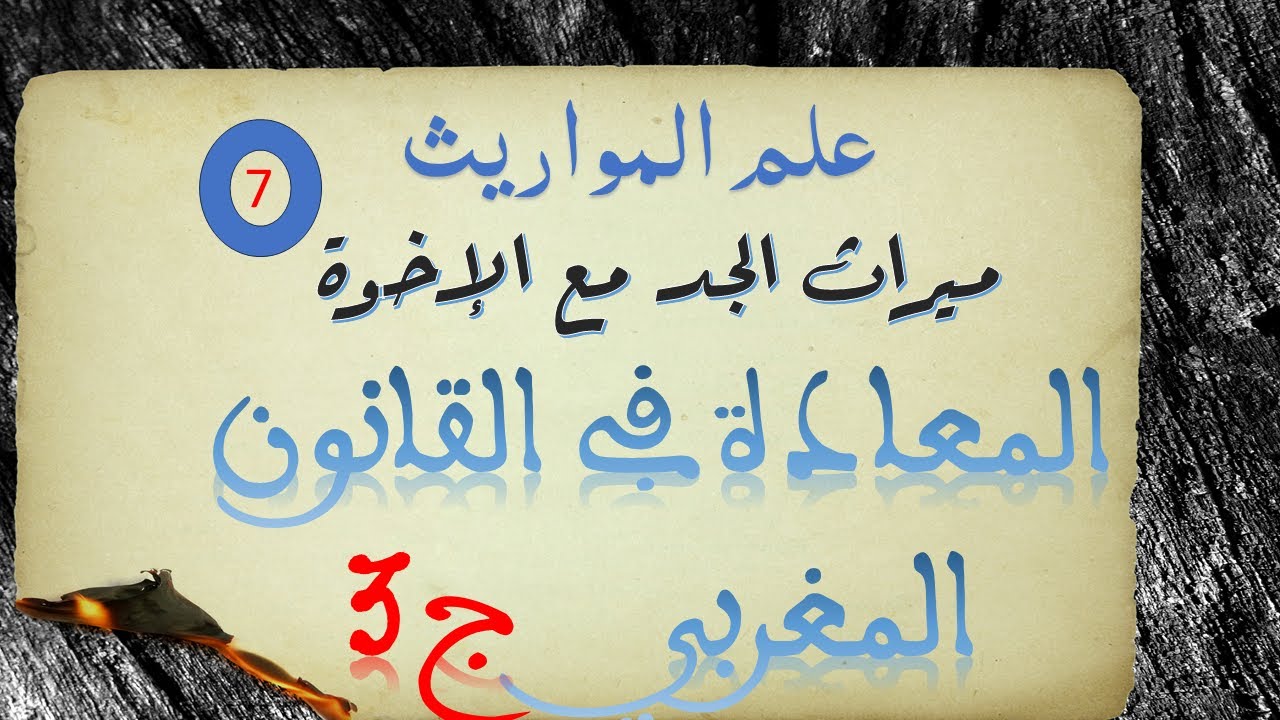 علم المواريث
7
ميراث الجد مع الإخوة
المعادلة في القانون
المغربي ج3